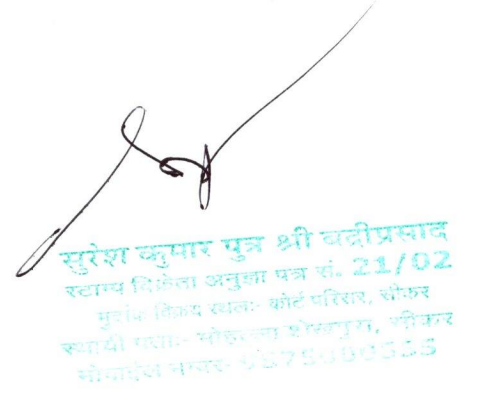 सुरेश कुमार पुत्र श्री बद्रीप्रसाद
स्टाम्प विक्रेता अनुज्ञा पत्र सं. 21/02
मुद्रांक विक्रय स्थल:- कोर्ट परिसर, सीकर
स्थायी पता:- मोहल्ला शेखपुरा, सीकर
मोबाईल नम्बर-